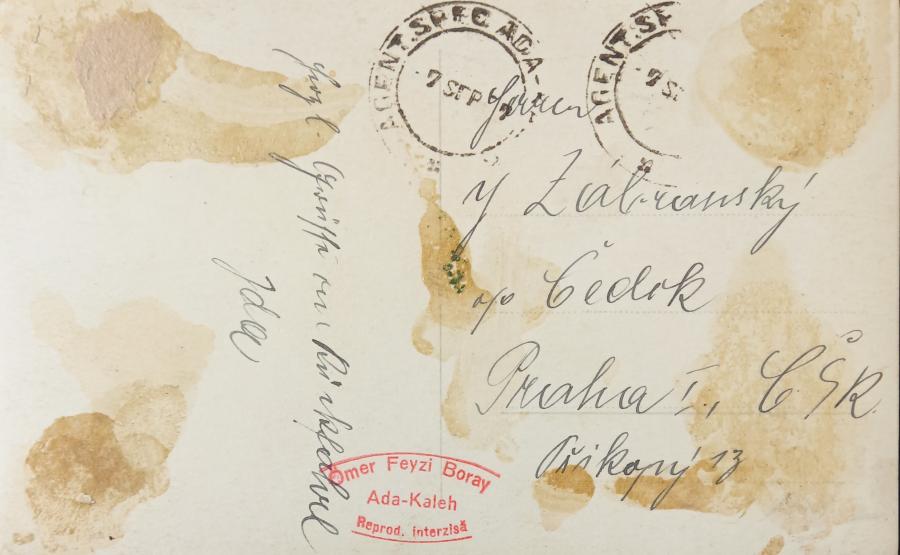 AGENT.SPEC.ADA-
7 SEP
AGENT.SP
7 SE
Grüsse
Ida
Herrn
Y Zábranský
Čedok
Praha I., ČSR.
Příkopy 13
Ömer Feyzi Boray
Ada-Kaleh
Reprod. interzisă